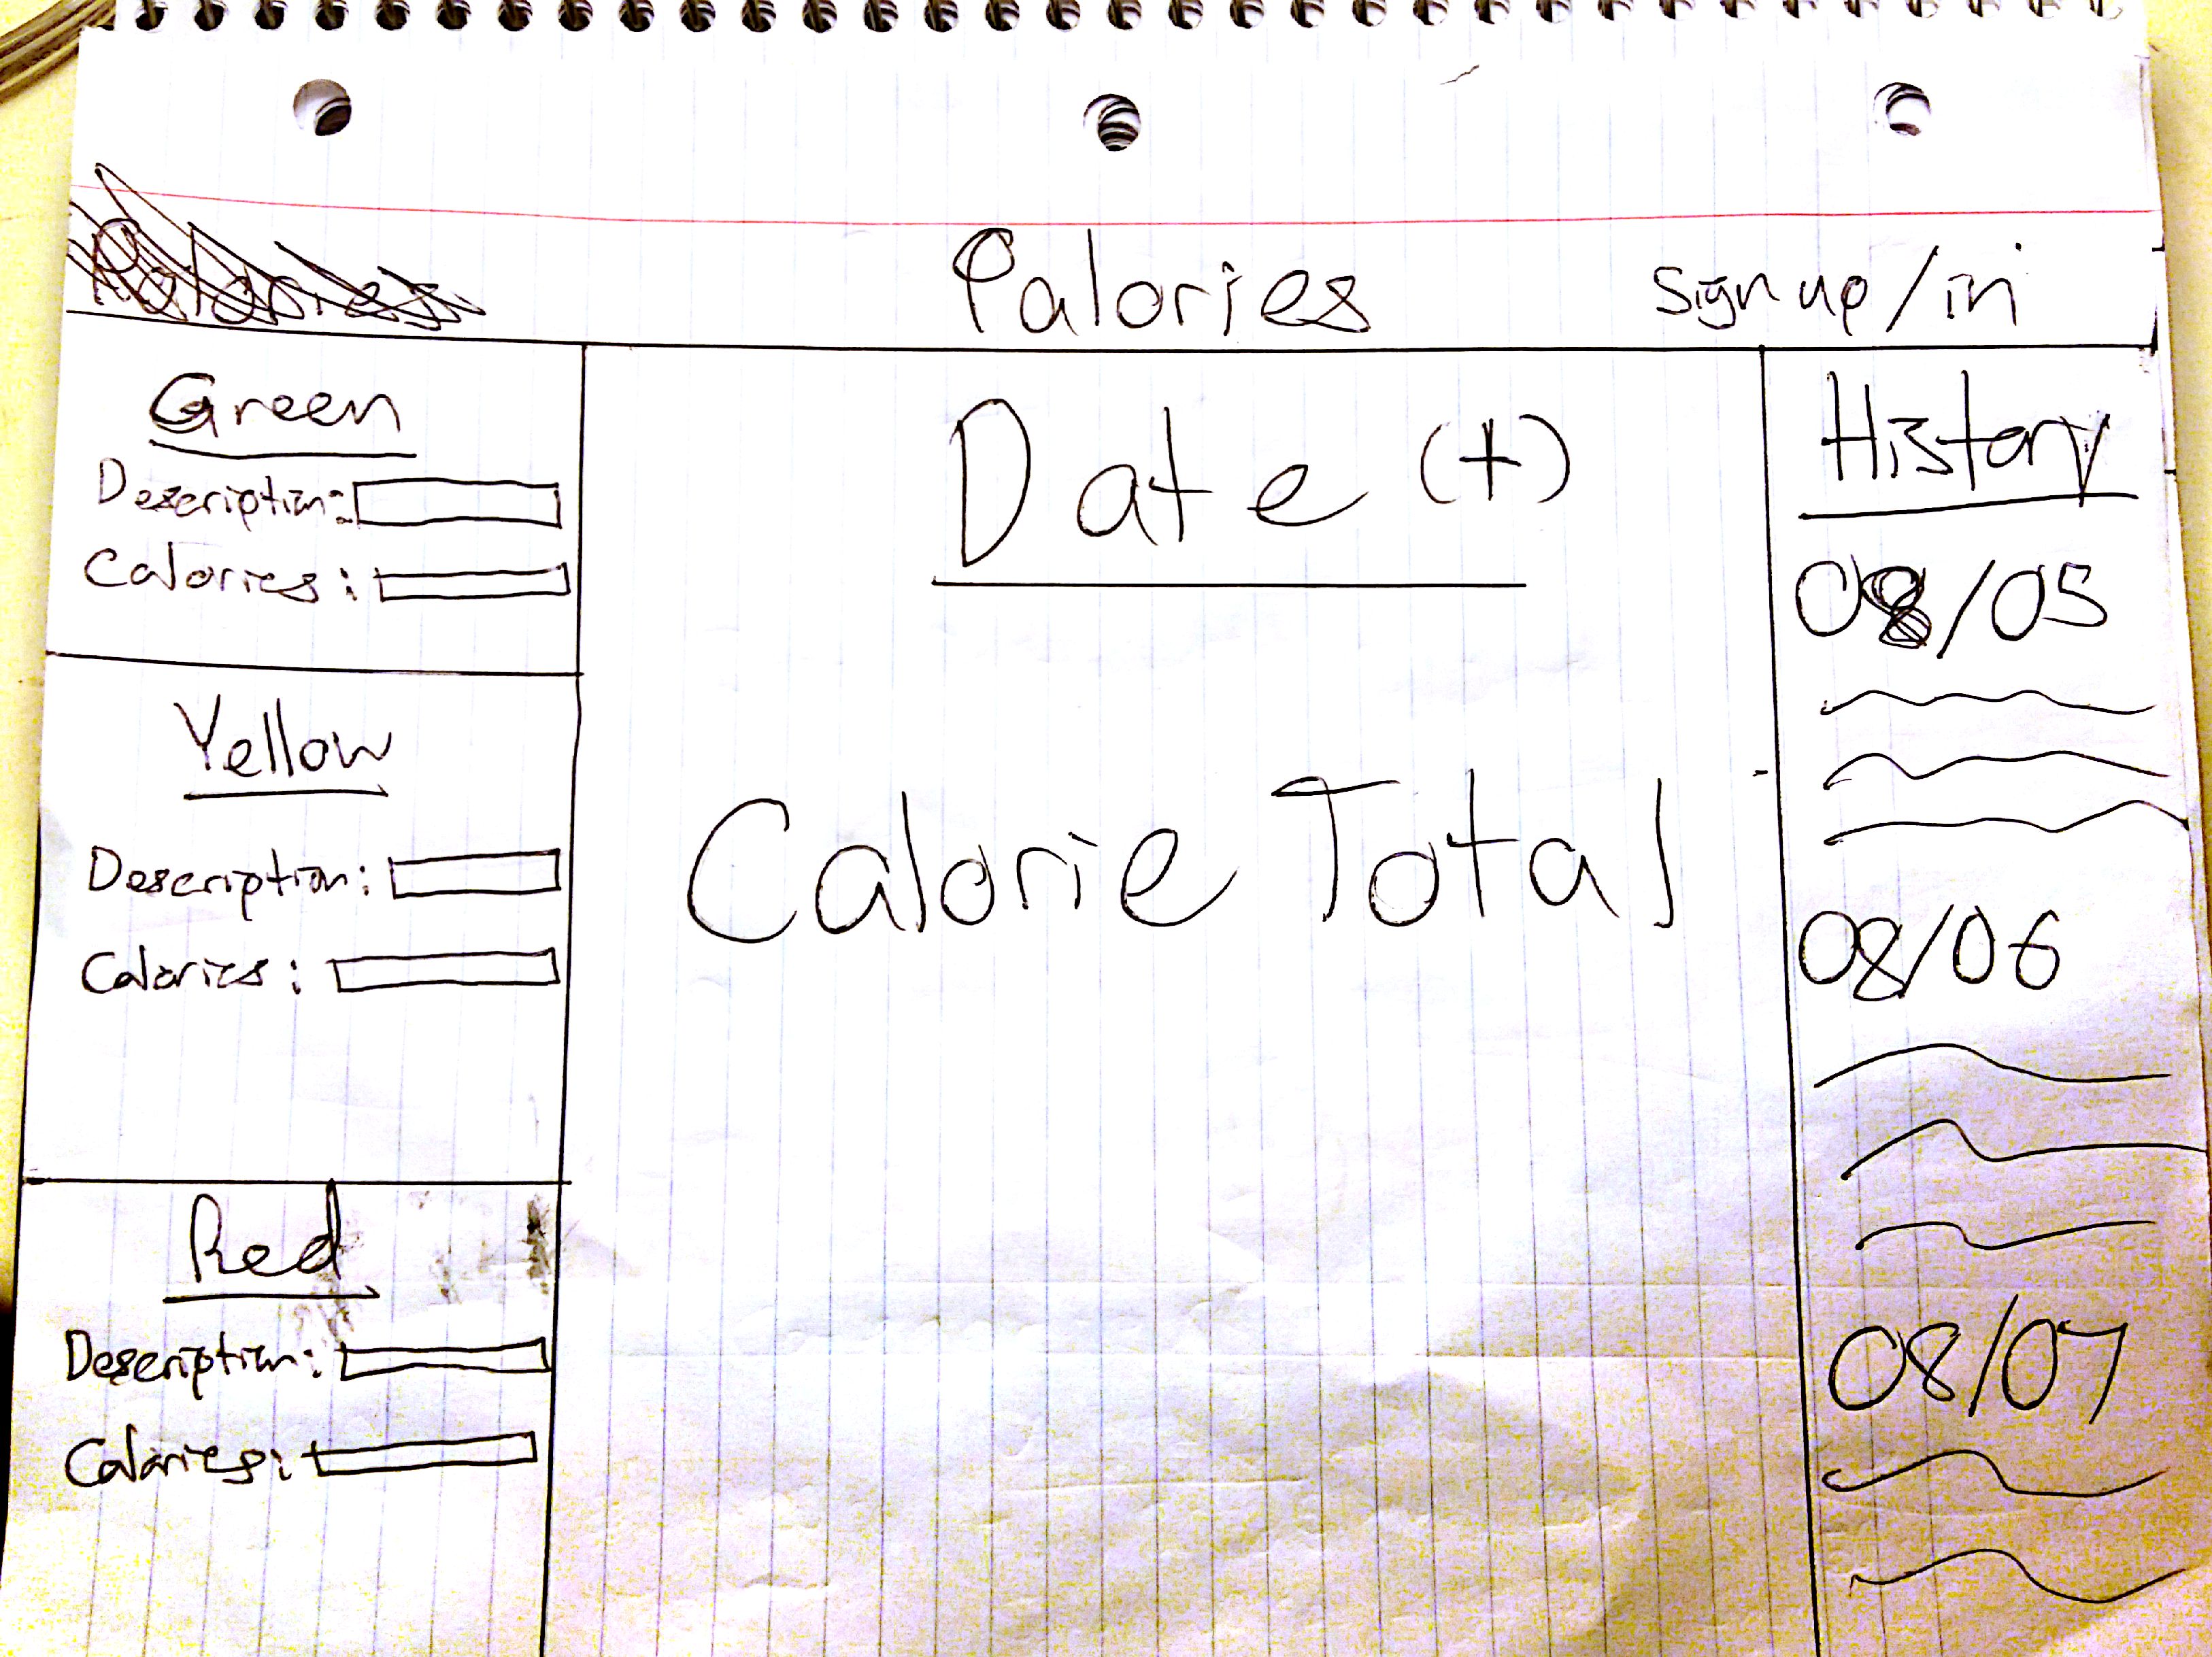 Palories
Palories
Sign up/in
Green
Description:
Calories:
Yellow
Description:
Calories:
Red
Description:
Calories:
Date (+)
Calorie Total
History
08/05
08/06
08/07